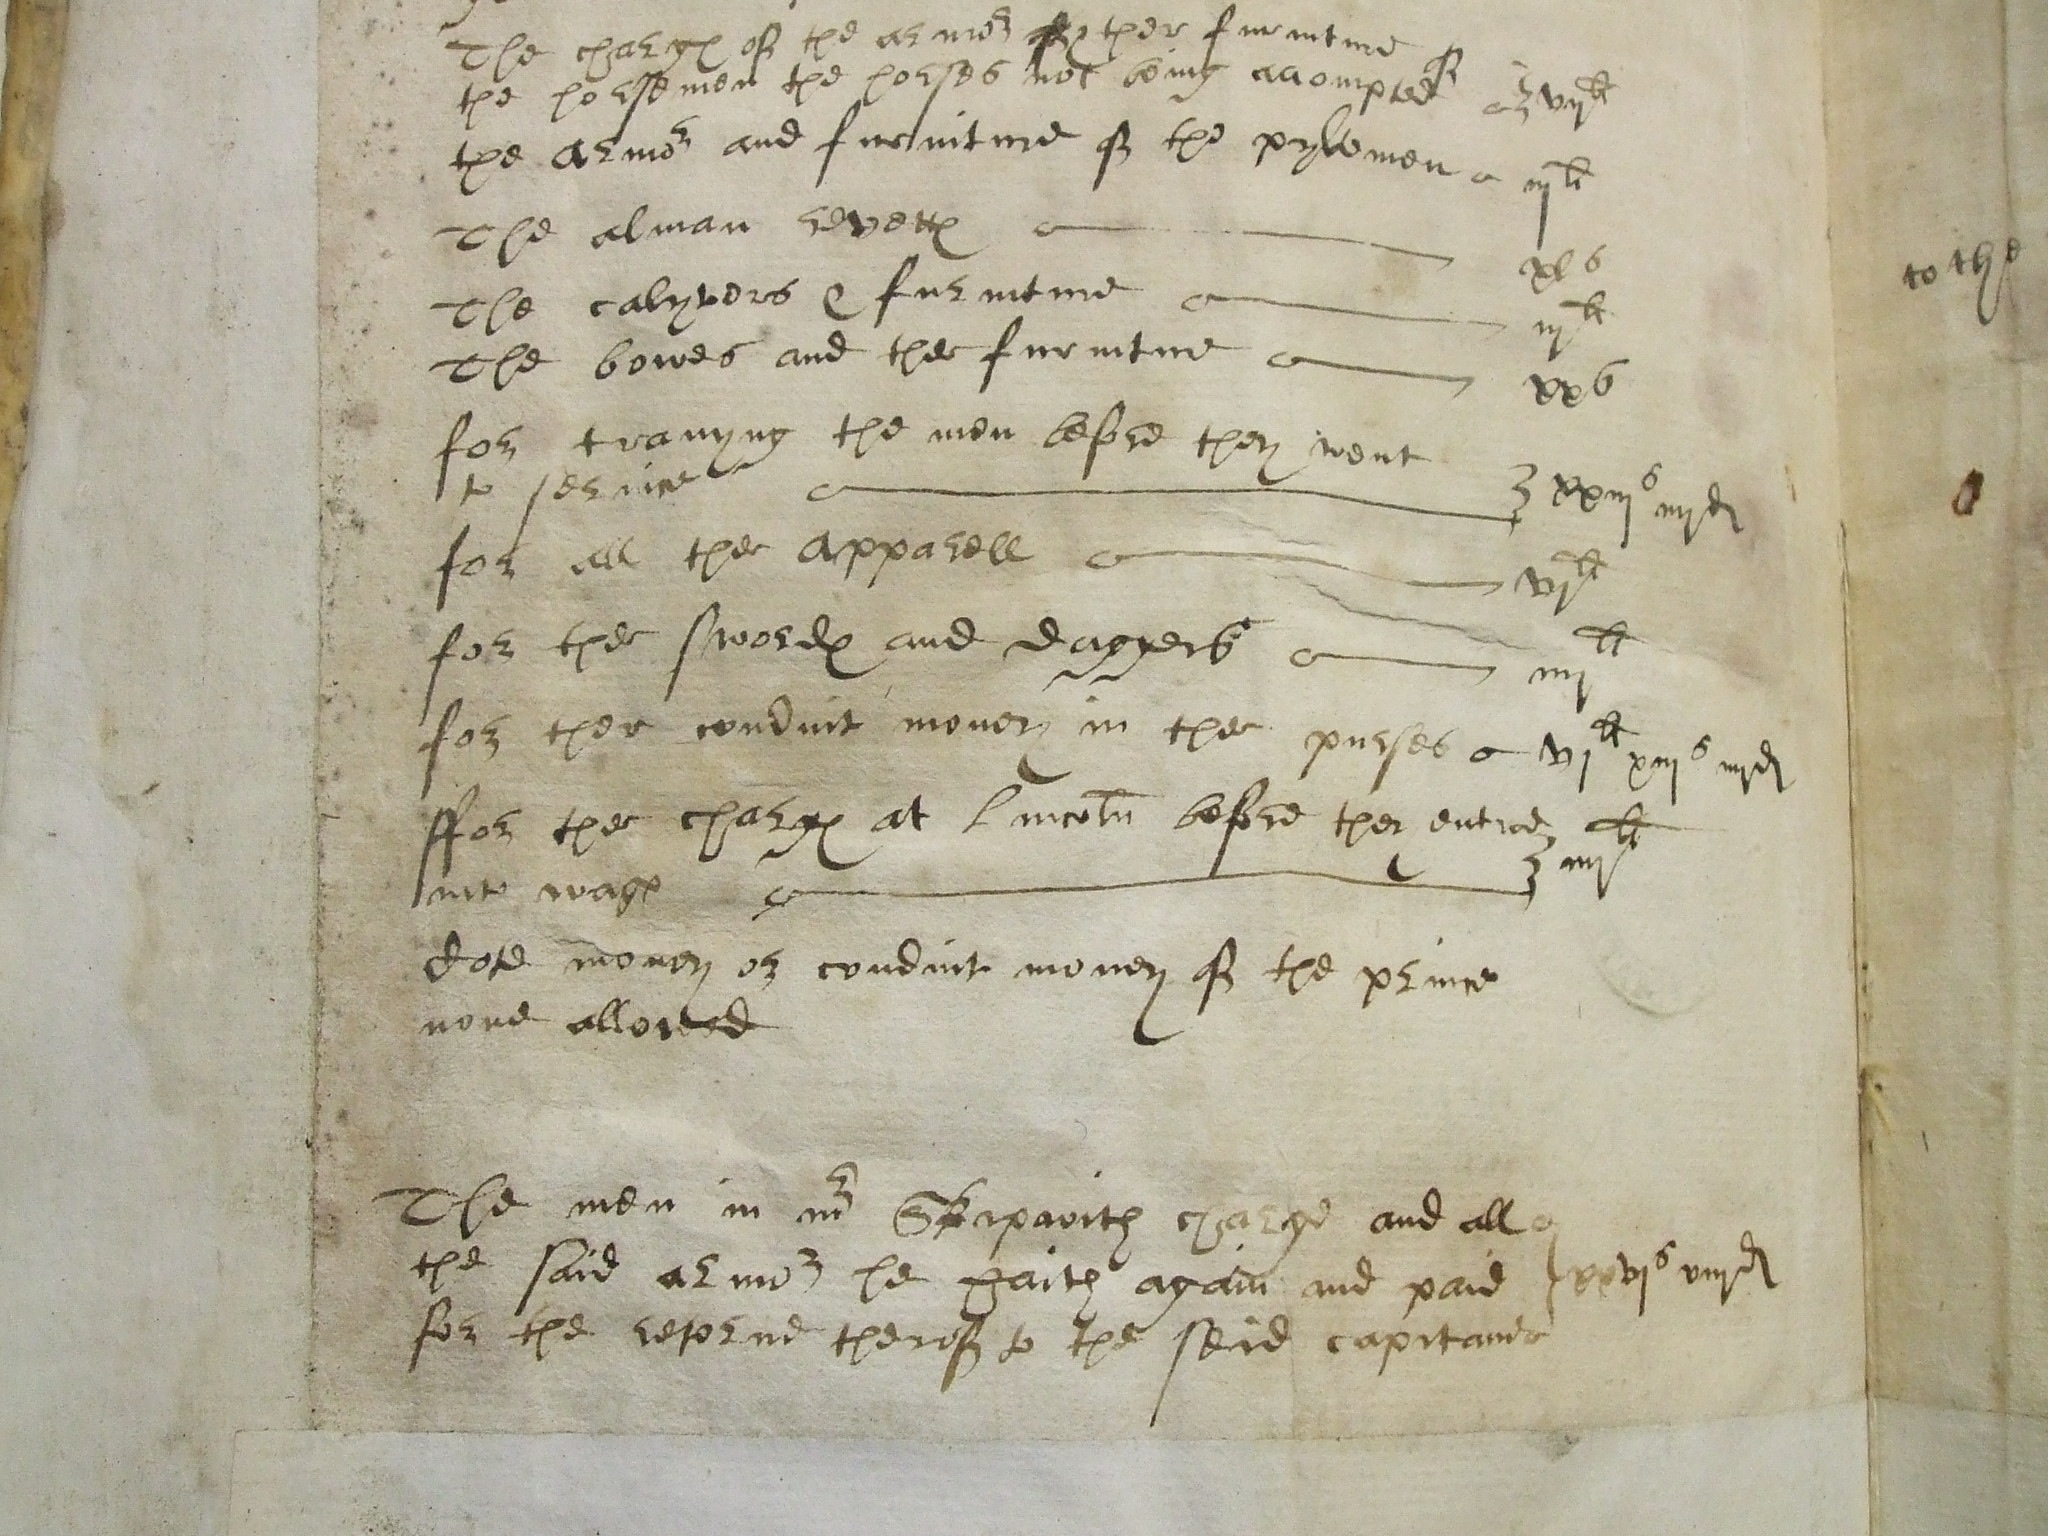 The chargƺ of the armoʳ & other furniture of
the horsemen the horses not being accompted vijˡⁱ
the Armoʳ and furniture of the pykemen iijˡⁱ
The alman revettƺ xlˢ
The calyvers & furniture iijˡⁱ
The bowes and ther furniture xxˢ
for traynyng the men before they went
to service xxiijˢ iiijᵈ
for all ther Apparell vjˡⁱ
for ther swordƺ and daggers iiijˡⁱ
for ther conduit money in ther purses vjˡⁱ xiijˢ iiijᵈ
ffor ther chargƺ at Lincoln before they entred
into wagƺ iiijˡⁱ
Cote money or conduit money of the prince
none allowed
The men in mʳ Skipwith charge and all
the said armoʳ he haith again and paid xxvjˢ viijᵈ
for the retorne therof to the seid capitaine
to the